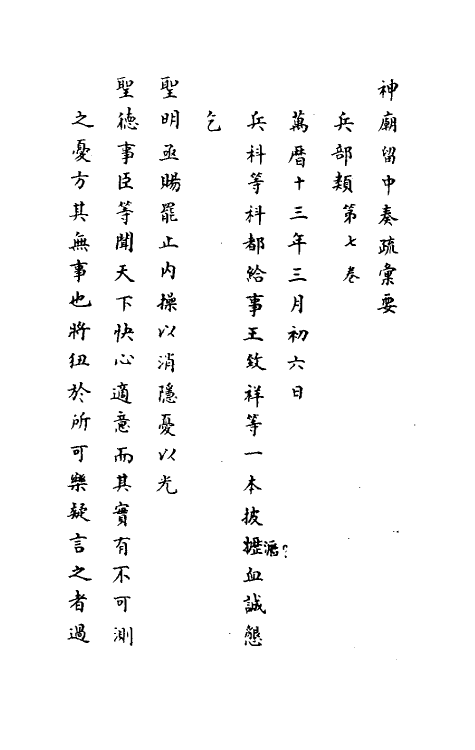 神廟留中奏疏彙要
兵部類第七卷
萬曆十三年三月初六日
兵科等科都給事王致祥等一本披攊血誠懇
瀝?
乞
聖明亟賜罷止內操以消隱憂以光
聖德事臣等聞天下快心適意而其實有不可測
之憂方其無事也將狃於所可樂疑言之者過